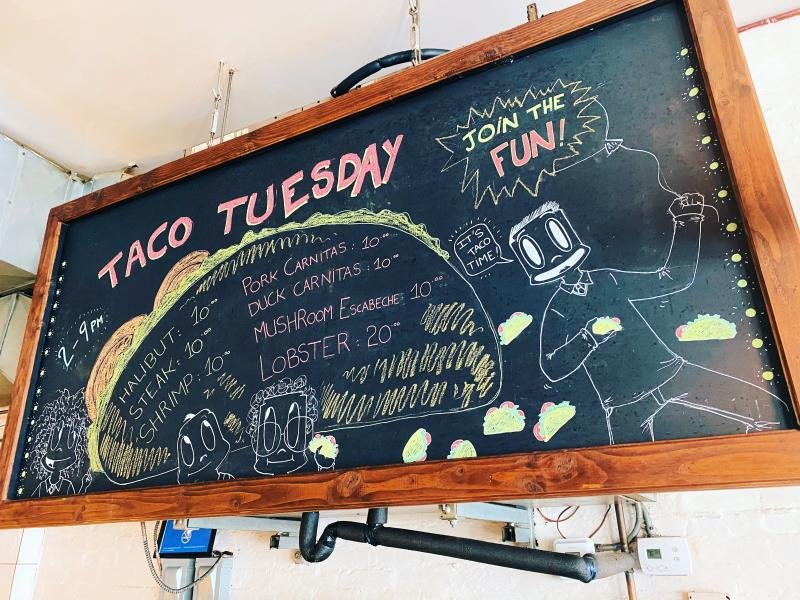 TACO TUESDAY
JOIN THE
FUN!
IT'S
TACO
TIME!
2-9PM
HALIBUT: 10.00
STEAK: 10.00
SHRIMP: 10.00
PORK CARNITAS: 10.00
DUCK CARNITAS: 10.00
MUSHROOM ESCABECHE: 10.00
LOBSTER: 20.00